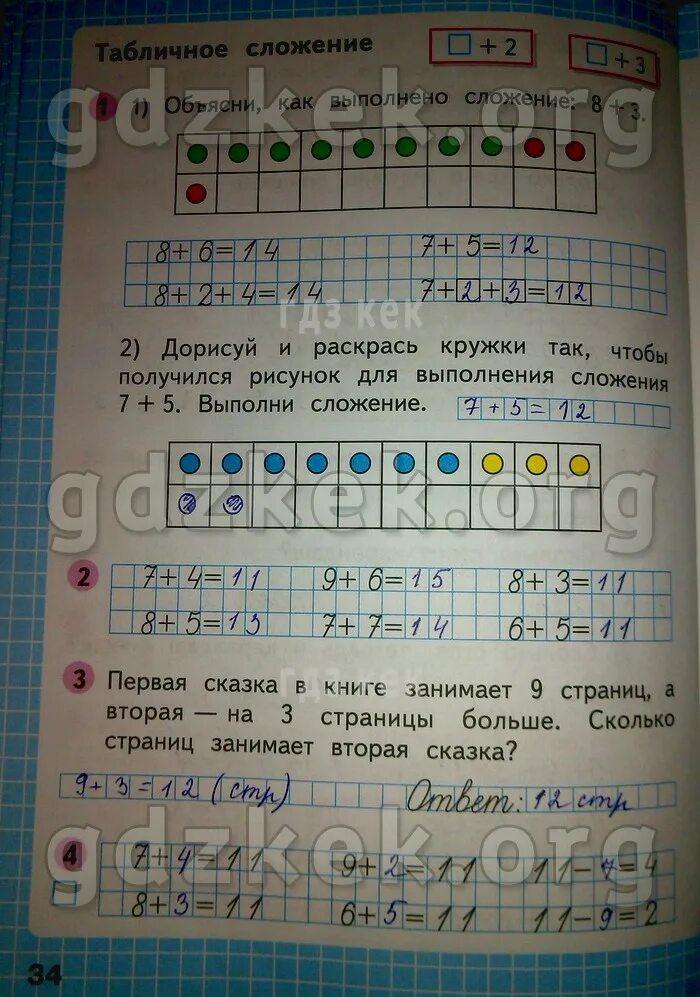 Табличное сложение
□ + 2
□ + 3
1 1) Объясни, как выполнено сложение: 8 + 3.
8+6=14 7+5=12
8+2+4=14 7+2+3=12
2) Дорисуй и раскрась кружки так, чтобы
получился рисунок для выполнения сложения
7 + 5. Выполни сложение. 7+5=12
2 7+4=11 9+6=15 8+3=11
8+5=13 7+7=14 6+5=11
3 Первая сказка в книге занимает 9 страниц, а
вторая — на 3 страницы больше. Сколько
страниц занимает вторая сказка?
9+3=12 (стр) Ответ: 12 стр
4 7+4=11 9+2=11 11-7=4
8+3=11 6+5=11 11-9=2
34
gdzkek.org
гдз кек
gdzkek.org
гдз кек
gdzkek.org